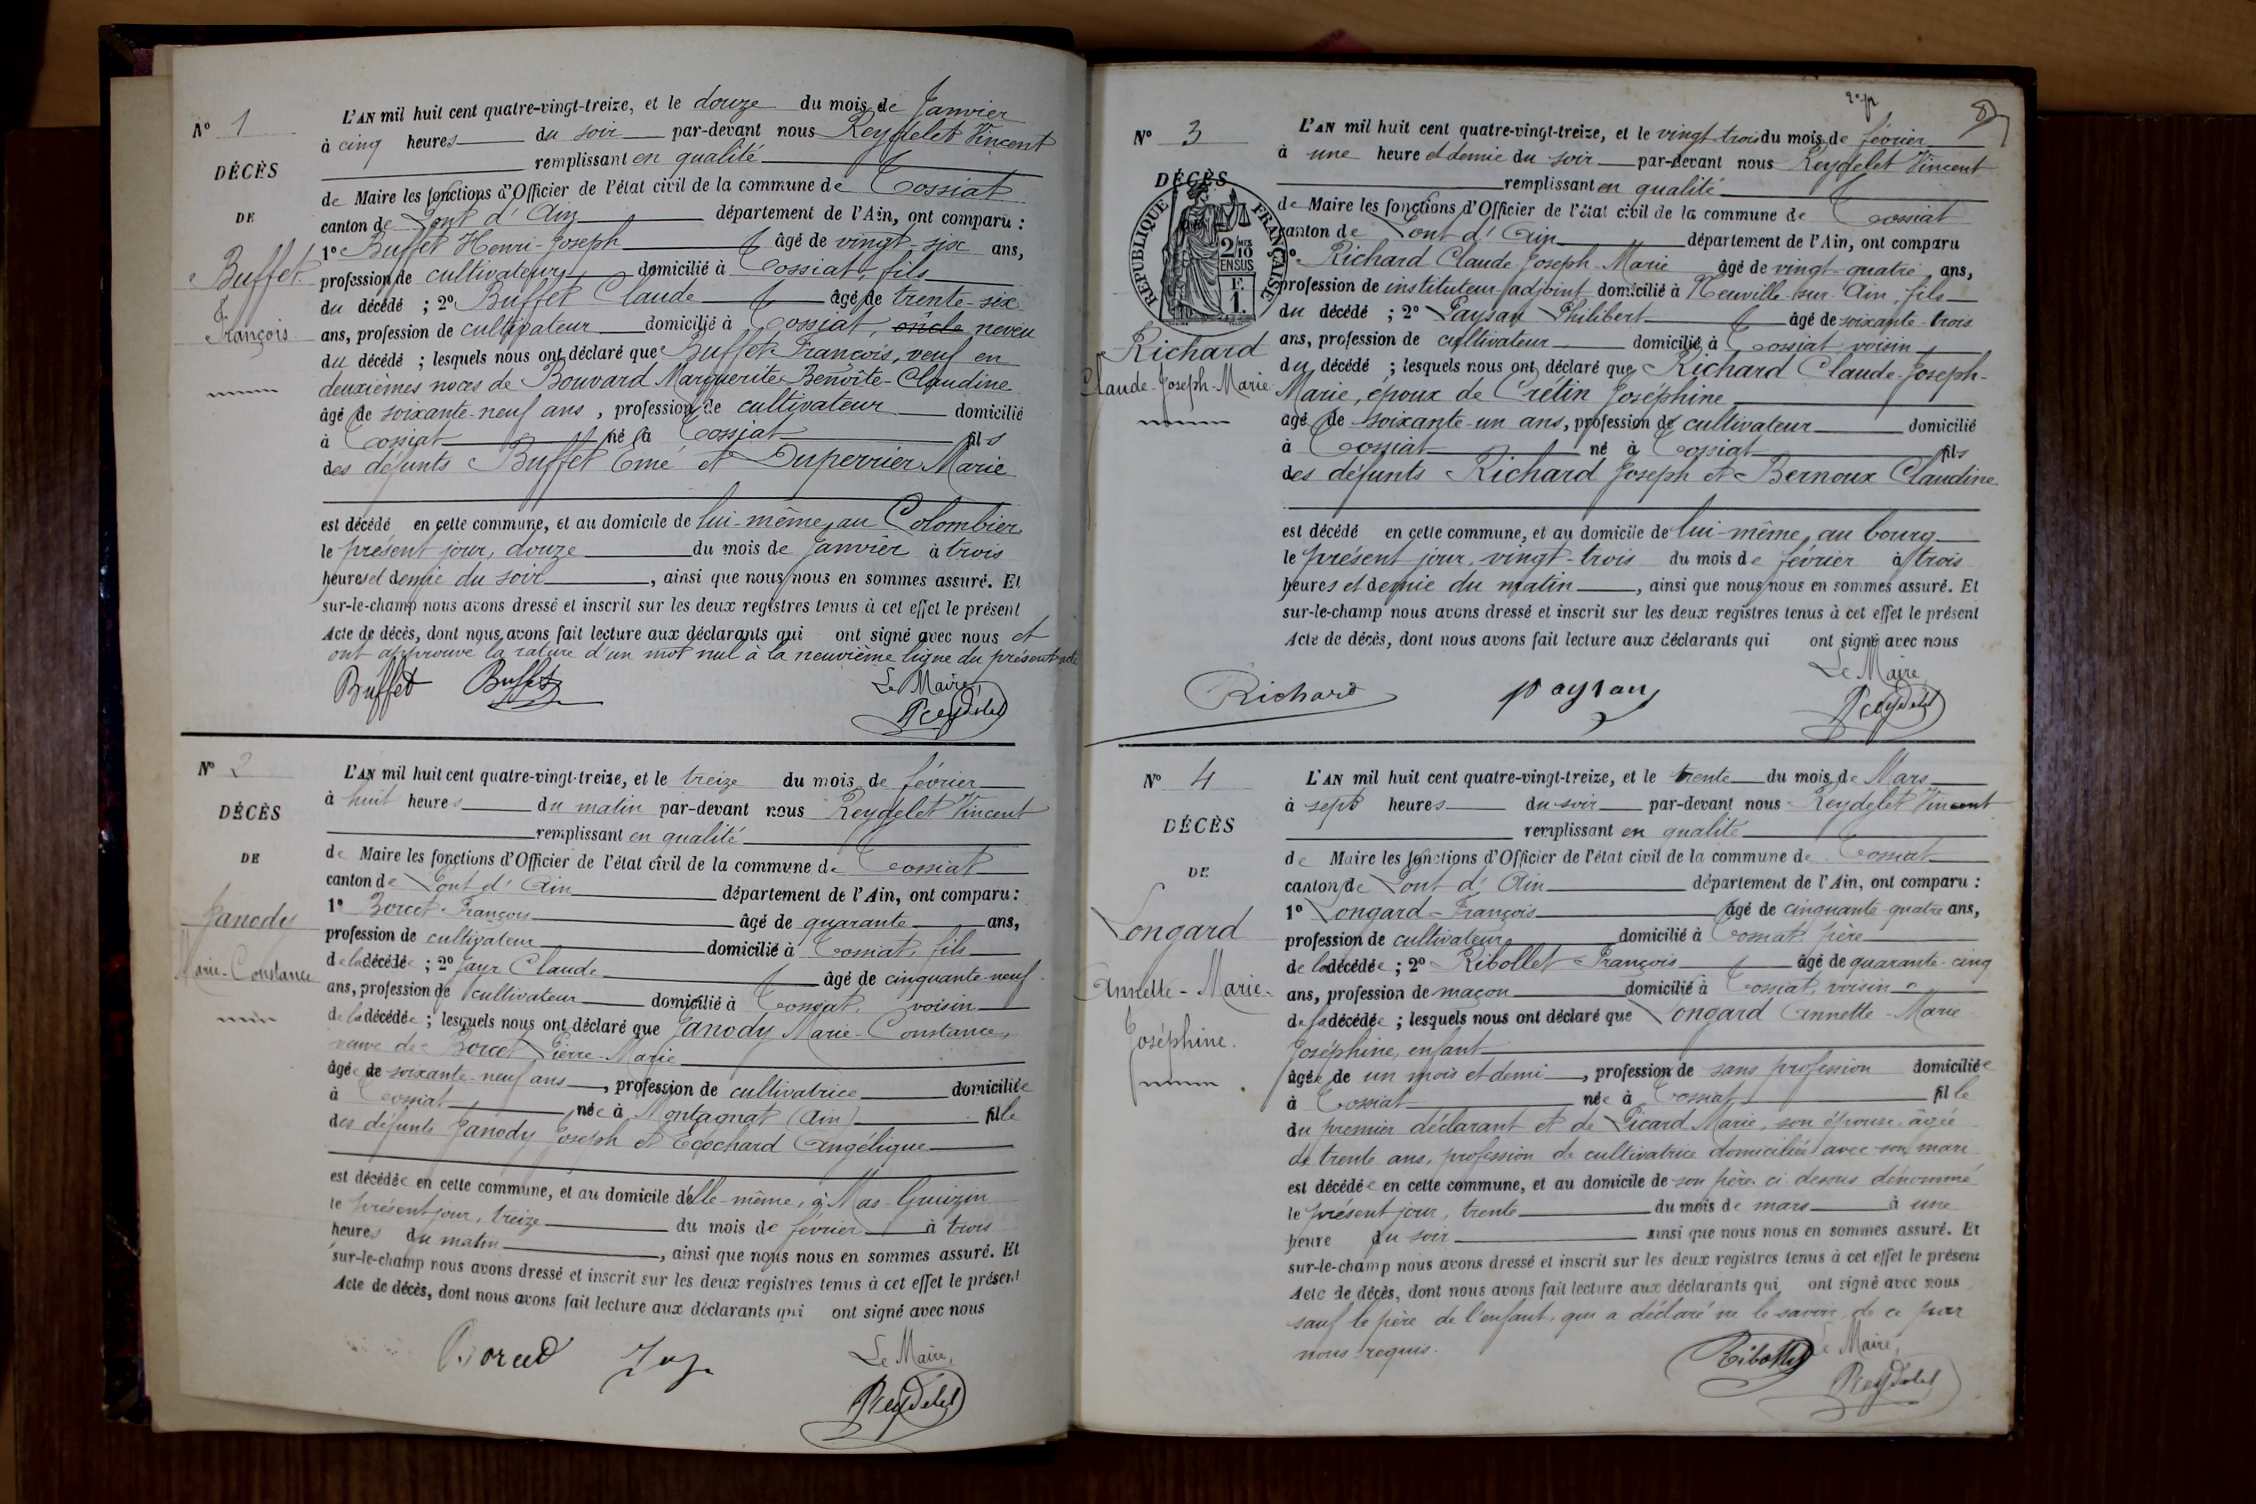 N° 1
DÉCÈS
DE
Buffet
François
L'AN mil huit cent quatre-vingt-treize, et le douze du mois de Janvier
à cinq heures du soir par-devant nous Reydelet Vincent
remplissant en qualité
de Maire les fonctions d'Officier de l'état civil de la commune de Tossiat
canton de Pont d'Ain département de l'Ain, ont comparu :
1° Buffet Henri-Joseph âgé de vingt-six ans,
profession de cultivateur domicilié à Tossiat, fils
du décédé ; 2° Buffet Claude âgé de trente-six
ans, profession de cultivateur domicilié à Tossiat, oncle neveu
du décédé ; lesquels nous ont déclaré que Buffet François, veuf en
deuxièmes noces de Bouvard Marguerite Benoîte-Claudine
âgé de soixante-neuf ans, profession de cultivateur domicilié
à Tossiat né à Tossiat fils
des défunts Buffet Emé et Duperrier Marie
est décédé en cette commune, et au domicile de lui-même, au Colombier
le présent jour, douze du mois de Janvier à trois
heures et demie du soir, ainsi que nous nous en sommes assuré. Et
sur-le-champ nous avons dressé et inscrit sur les deux registres tenus à cet effet le présent
Acte de décès, dont nous avons fait lecture aux déclarants qui ont signé avec nous et
ont approuvé la rature d'un mot nul à la neuvième ligne du présent acte
Buffet Buffet Le Maire,
Reydelet
N° 2
DÉCÈS
DE
Janody
Marie-Constance
L'AN mil huit cent quatre-vingt-treize, et le treize du mois de février
à huit heures du matin par-devant nous Reydelet Vincent
remplissant en qualité
de Maire les fonctions d'Officier de l'état civil de la commune de Tossiat
canton de Pont d'Ain département de l'Ain, ont comparu :
1° Borcet François âgé de quarante ans,
profession de cultivateur domicilié à Tossiat, fils
de la décédée ; 2° Jayr Claude âgé de cinquante-neuf
ans, profession de cultivateur domicilié à Tossiat, voisin
de la décédée ; lesquels nous ont déclaré que Janody Marie-Constance,
veuve de Borcet Pierre-Marie
âgée de soixante-neuf ans, profession de cultivatrice domiciliée
à Tossiat née à Montagnat (Ain) fille
des défunts Janody Joseph et Ecochard Angélique
est décédée en cette commune, et au domicile d'elle-même, à Mas-Guizin
le présent jour, treize du mois de février à trois
heures du matin, ainsi que nous nous en sommes assuré. Et
sur-le-champ nous avons dressé et inscrit sur les deux registres tenus à cet effet le présent
Acte de décès, dont nous avons fait lecture aux déclarants qui ont signé avec nous
Borced Le Maire,
Reydelet
N° 3
DÉCÈS
RÉPUBLIQUE FRANÇAISE
2/10
EN SUS
F.
1.
Richard
Claude-Joseph-Marie
L'AN mil huit cent quatre-vingt-treize, et le vingt-trois du mois de février
à une heure et demie du soir par-devant nous Reydelet Vincent
remplissant en qualité
de Maire les fonctions d'Officier de l'état civil de la commune de Tossiat
canton de Pont d'Ain département de l'Ain, ont comparu
Richard Claude-Joseph-Marie âgé de vingt-quatre ans,
profession de instituteur-adjoint domicilié à Neuville-sur-Ain, fils
du décédé ; 2° Paysan Philibert âgé de soixante-trois
ans, profession de cultivateur domicilié à Tossiat voisin
du décédé ; lesquels nous ont déclaré que Richard Claude-Joseph-
Marie, époux de Crétin Joséphine
âgé de soixante-un ans, profession de cultivateur domicilié
à Tossiat né à Tossiat fils
des défunts Richard Joseph et Bernoux Claudine
est décédé en cette commune, et au domicile de lui-même, au bourg
le présent jour, vingt-trois du mois de février à trois
heures et demie du matin, ainsi que nous nous en sommes assuré. Et
sur-le-champ nous avons dressé et inscrit sur les deux registres tenus à cet effet le présent
Acte de décès, dont nous avons fait lecture aux déclarants qui ont signé avec nous
Richard paysan Le Maire,
Reydelet
N° 4
DÉCÈS
DE
Longard
Annette-Marie-
Joséphine.
L'AN mil huit cent quatre-vingt-treize, et le trente du mois de Mars
à sept heures du soir par-devant nous Reydelet Vincent
remplissant en qualité
de Maire les fonctions d'Officier de l'état civil de la commune de Tossiat
canton de Pont d'Ain département de l'Ain, ont comparu :
1° Longard François âgé de cinquante-quatre ans,
profession de cultivateur domicilié à Tossiat, père
de la décédée ; 2° Ribollet François âgé de quarante-cinq
ans, profession de maçon domicilié à Tossiat, voisin
de la décédée ; lesquels nous ont déclaré que Longard Annette-Marie
Joséphine, enfant
âgée de un mois et demi, profession de sans profession domiciliée
à Tossiat née à Tossiat fille
du premier déclarant et de Picard Marie, son épouse, âgée
de trente ans, profession de cultivatrice domiciliée avec son mari
est décédée en cette commune, et au domicile de son père ci-dessus dénommé
le présent jour, trente du mois de mars à une
heure du soir ainsi que nous nous en sommes assuré. Et
sur-le-champ nous avons dressé et inscrit sur les deux registres tenus à cet effet le présent
Acte de décès, dont nous avons fait lecture aux déclarants qui ont signé avec nous
sauf le père de l'enfant, qui a déclaré ne le savoir, de ce par
nous requis.
Ribollet Le Maire,
Reydelet